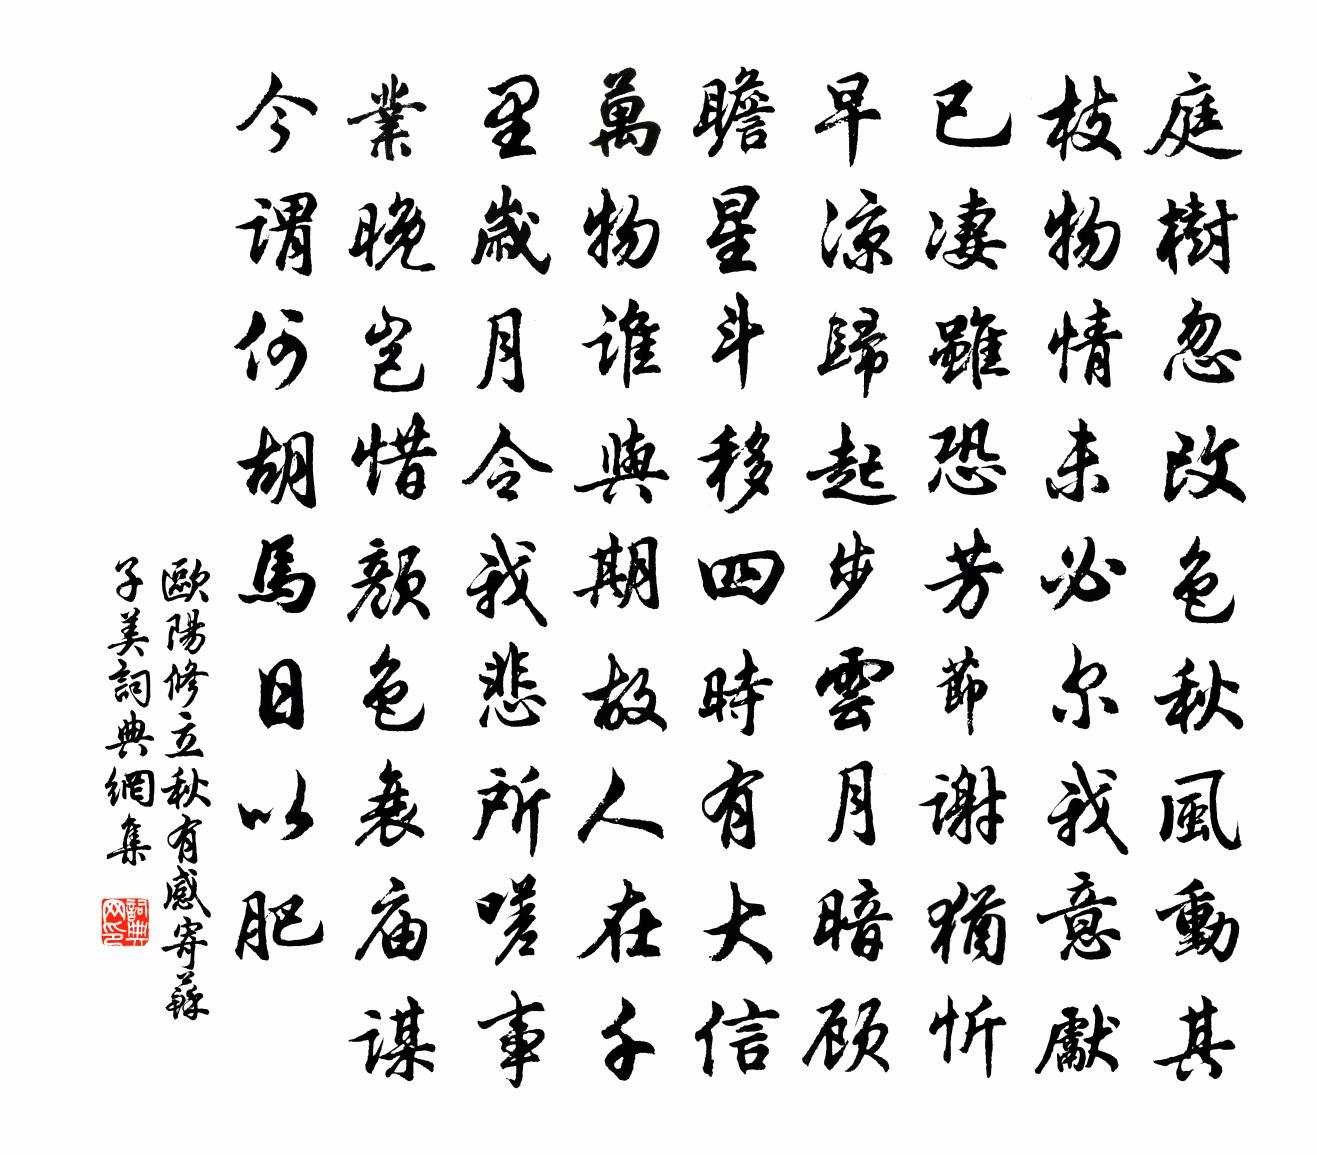 庭樹忽改色秋風動其
枝物情未必尔我意獻
已淒雖恐芳節謝猶忻
早涼歸起步雲月暗顾
瞻星斗移四時有大信
萬物谁與期故人在千
里歲月令我悲所嗟事
業晚岂惜顏色衰庙谋
今谓何胡馬日以肥
歐陽修立秋有感寄蘇
子美詞典網集
詞典网印